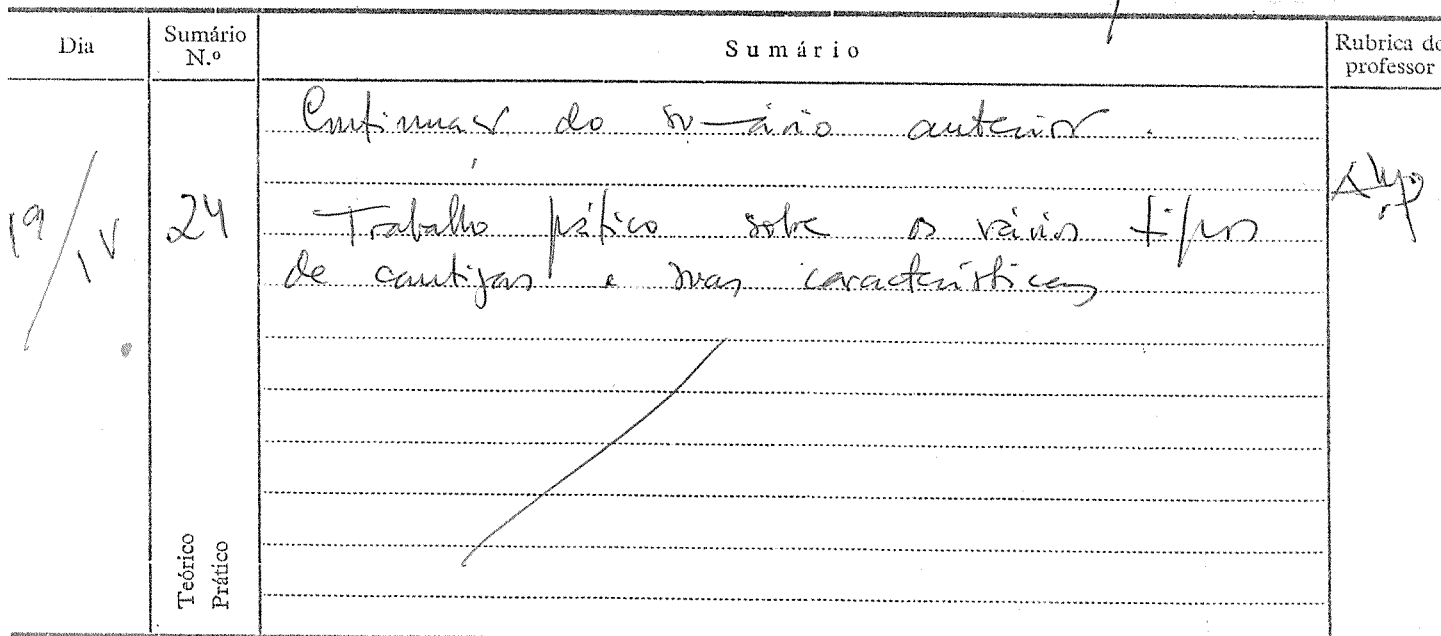 Dia
Sumário N.º
Sumário
Rubrica do professor
19/IV
24
Continuaç do sumário anterior.
Trabalho prático sobre os vários tipos
de cantigas e suas características
Teórico
Prático